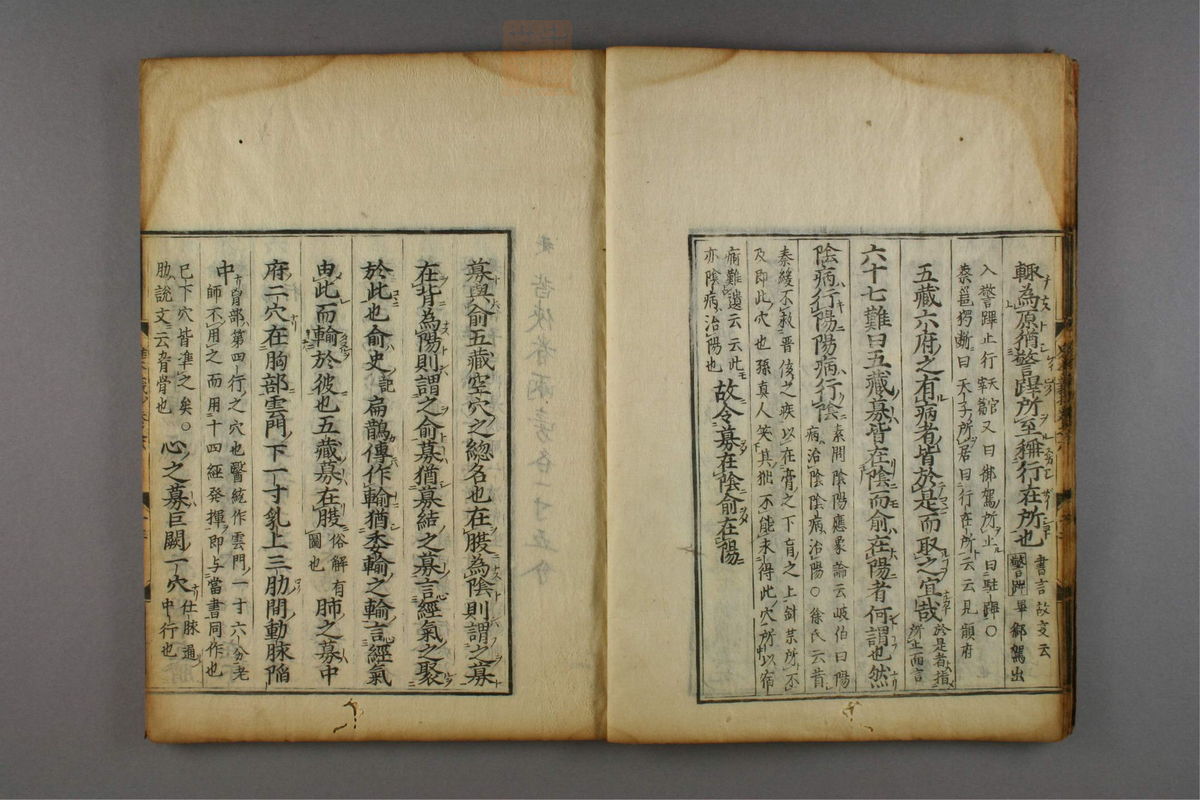 輙為原猶警蹕所至稱行在所也 書言故支云
警蹕 畢 御駕出
入警蹕止行 天官宰 舊又曰御駕所止曰駐蹕〇
蔡邕獨斷曰天子所居曰行在所云云見顔府
五藏六府之有病者皆於是而取之宜哉 於是者指
所止而言
六十七難曰五藏募皆在陰而俞在陽者何謂也然
陰病行陽陽病行陰 素問陰陽應象論云岐伯曰陽
病治陰陰病治陽〇徐氏云昔
秦緩不救晉侯之疾以在膏之下肓之上針藥所不
及即此穴也孫真人笑其拙不能未得此穴所以宿
痾難遣云云此
亦陰病治陽也 故令募在陰俞在陽
募與俞五藏空穴之總名也在腹為陰則謂之募
在背為陽則謂之俞募猶募結之募言經氣之聚
於此也俞史記扁鵲傳作輸猶委輸之輸言經氣
由此而輸於彼也五藏募在腹 俗解有
圖也 肺之募中
府二穴在胸部雲門下一寸乳上三肋間動脉陷
中 脅部第四行之穴也醫統作雲門一寸六分老
師不用之而用十四經發揮即与當書同作也
已下穴皆準之矣〇
肋説文云脅骨也 心之募巨闕一穴 仕脉通
中行也